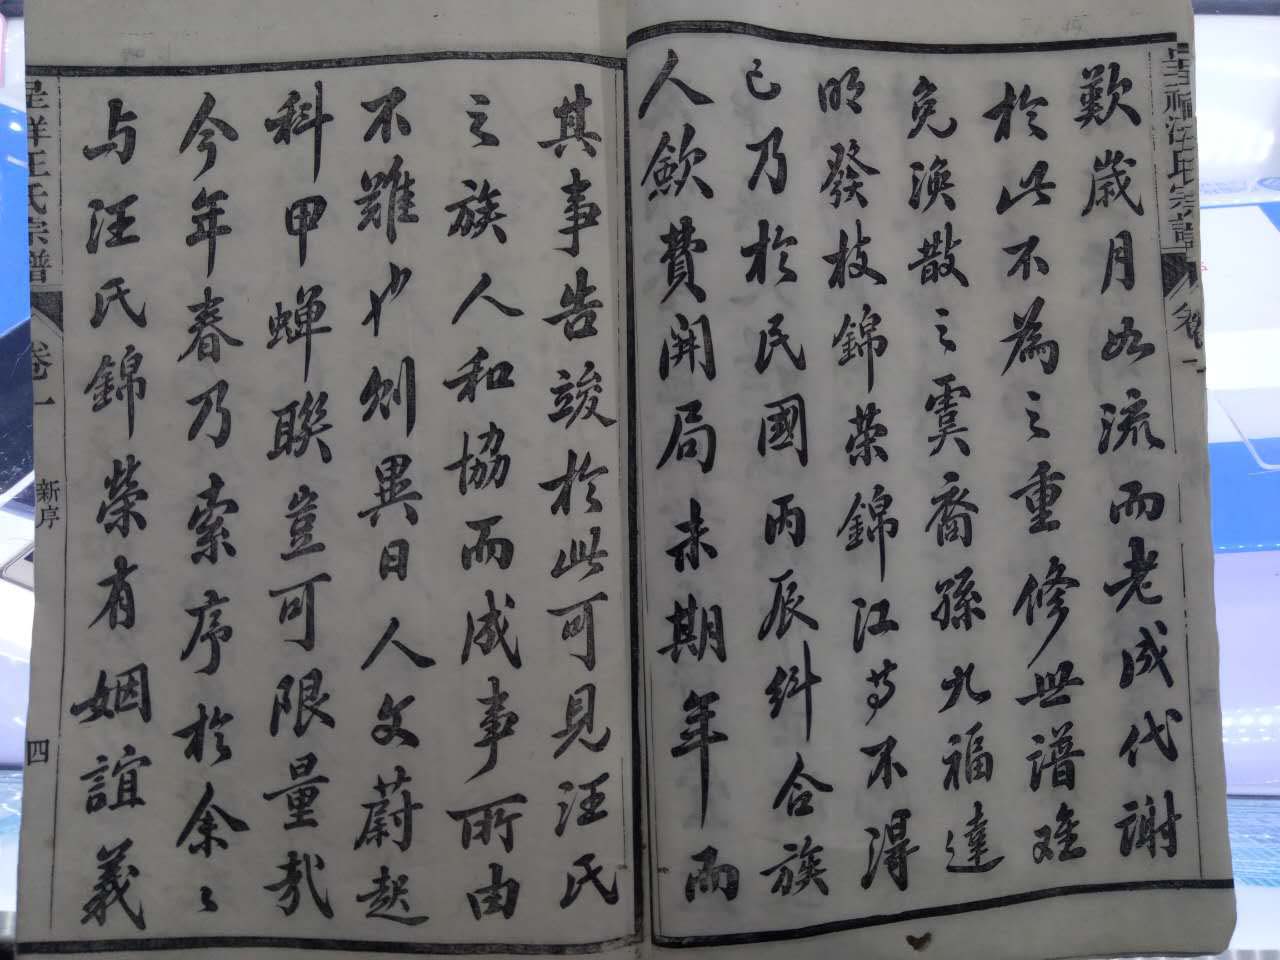 歎歲月如流而老成代謝
於此不為之重修無譜難
免渙散之虞裔孫九福達
明發枝錦荣錦江等不得
已乃於民國丙辰糾合族
人歛費開局未期年而
其事告竣於此可見汪氏
之族人和協而成事所由
不難也则異日人文蔚起
科甲蝉聯豈可限量哉
今年春乃索序於余々
与汪氏錦榮有姻誼義
卷一
新序
四